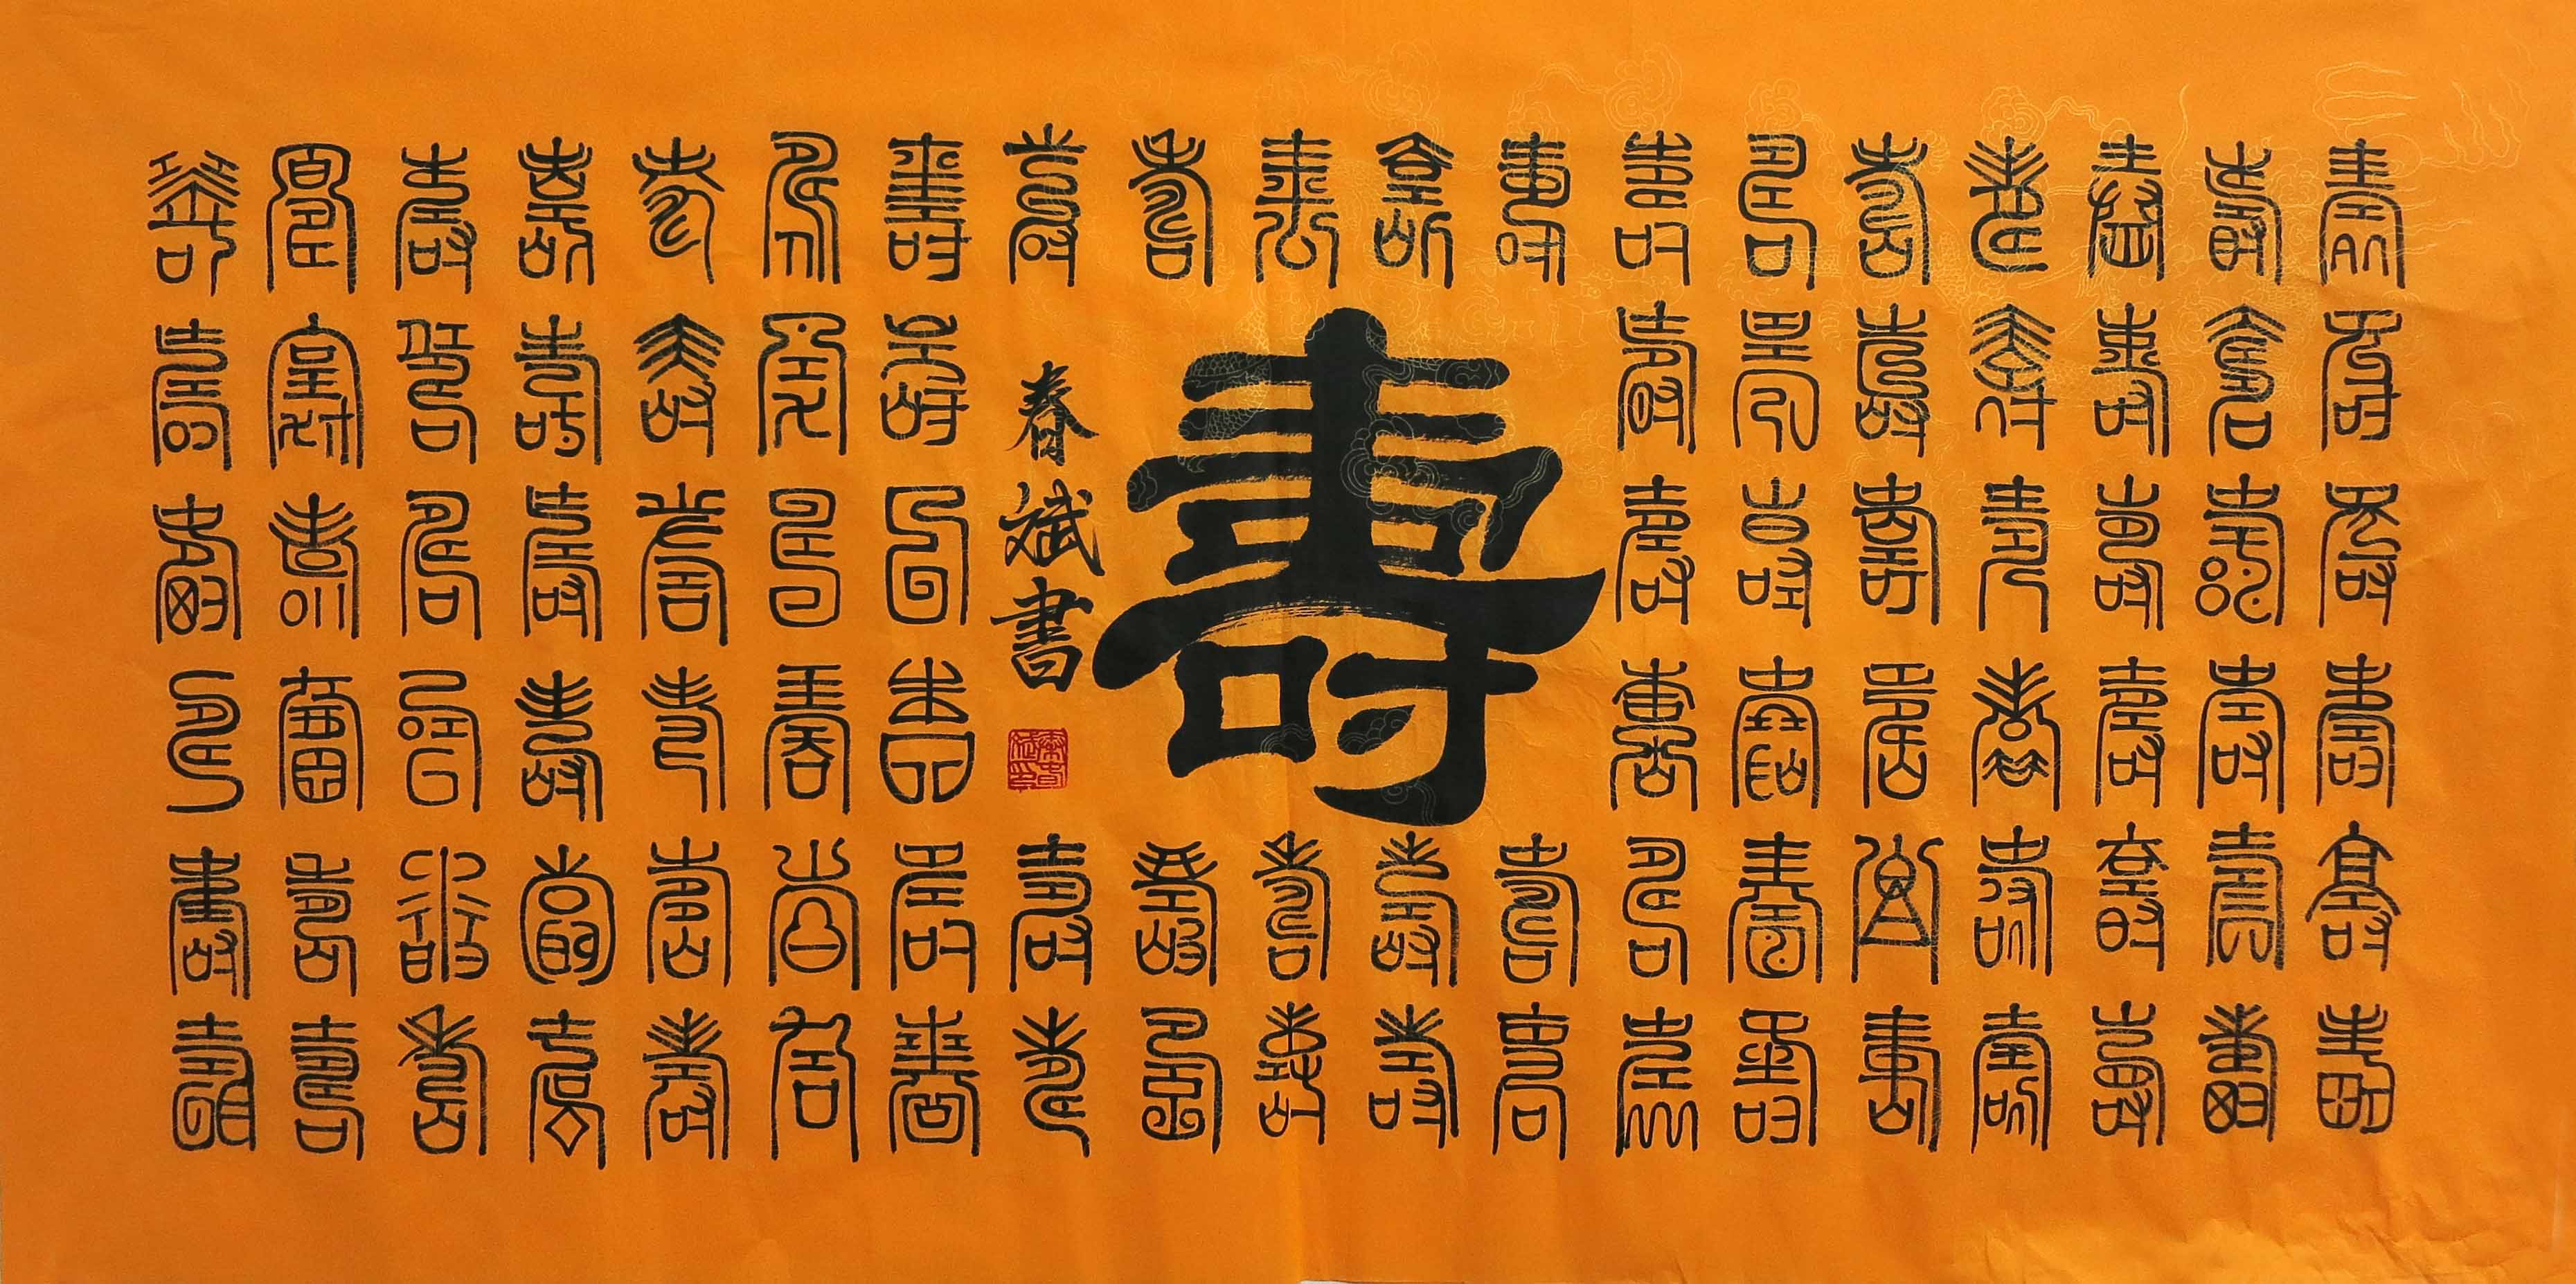 壽壽壽壽壽壽
壽壽壽壽壽壽
壽壽壽壽壽壽
壽壽壽壽壽壽
壽壽壽壽壽壽
壽壽壽壽壽壽
壽壽壽壽壽壽
壽壽壽壽壽
壽
春斌書
壽壽壽壽壽
壽壽壽壽壽
壽壽壽壽壽壽
壽壽壽壽壽壽
壽壽壽壽壽壽
壽壽壽壽壽壽
壽壽壽壽壽壽
壽壽壽壽壽壽
壽壽壽壽壽壽